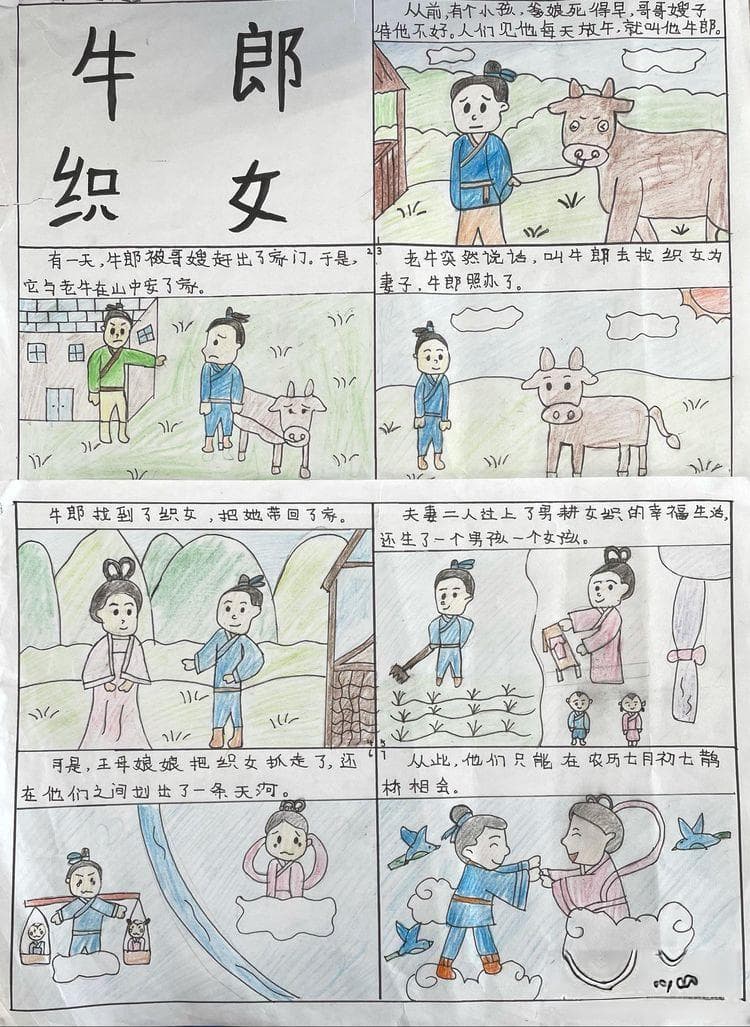 牛 郎
织 女
从前,有个小孩,爹娘死得早,哥哥嫂子
待他不好。人们见他每天放牛,就叫他牛郎。
2
有一天,牛郎被哥嫂赶出了家门。于是,
它与老牛在山中安了家。
3
老牛突然说话,叫牛郎去找织女为
妻子,牛郎照办了。
4
牛郎找到了织女,把她带回了家。
5
夫妻二人过上了男耕女织的幸福生活,
还生了一个男孩一个女孩。
6
可是,王母娘娘把织女抓走了,还
在他们之间划出了一条天河。
7
从此,他们只能在农历七月初七鹊
桥相会。